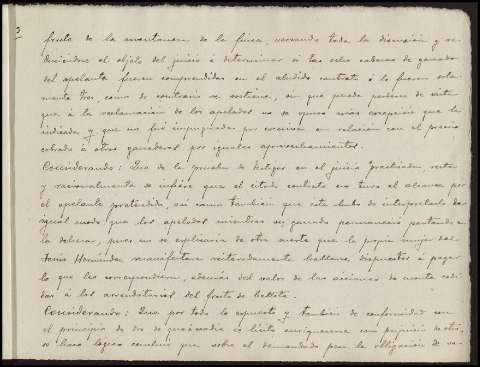 3
fruto de la montanera de la finca, versando toda la discusión y re-
duciéndose el objeto del juicio á determinar si las ocho cabezas de ganado
del apelante fueron comprendidas en el aludido contrato ó lo fueron sola-
mente tres, como de contrario se sostiene, sin que pueda perderse de vista
que á la reclamación de los apelados no se opuso más excepción que la
indicada y que no fué impugnada por excesiva en relación con el precio
cobrado á otros ganaderos por iguales aprovechamientos.
Considerando: Que de la prueba de testigos en el juicio practicada, recta
y racionalmente se infiere que el citado contrato no tuvo el alcance por
el apelante pretendido, así como también que este hubo de interpretarlo de
igual modo que los apelados mientras su ganado permaneció pastando en
la dehesa, pues no se explicaría de otra suerte que la propia mujer del
Jesús Hernández manifestara reiteradamente hallarse dispuestos á pagar
lo que les correspondiera, además del valor de las de monte cedi-
das á los arrendatarios del fruto de bellota.
Considerando: Que por todo lo expuesto y también de conformidad con
el principio de dro de que á nadie es lícito enriquecerse con perjuicio de otro,
se hace lógico concluir que sobre el demandado pesa la obligación de sa-